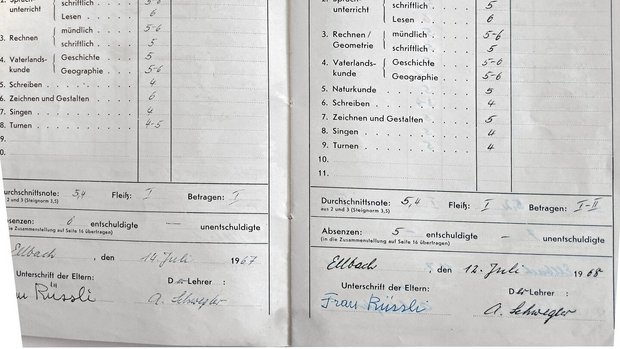 schriftlich . . . 5
unterricht Lesen . . . . . 6
3. Rechnen mündlich . . . . 5-6
schriftlich . . . 5
4. Vaterlands- Geschichte . . . 5
kunde Geographie . . . 5-6
5. Schreiben . . . . . . . . . 4
6. Zeichnen und Gestalten . . . . 6
7. Singen . . . . . . . . . . 4
8. Turnen . . . . . . . . . . 4-5
9.
0.
Durchschnittsnote: 5,4 Fleiß: I Betragen: I
aus 2 und 3 (Steignorm 3,5)
Absenzen: 6 entschuldigte — unentschuldigte
(in die Zusammenstellung auf Seite 16 übertragen)
Ellbach, den 14. Juli 1967
Unterschrift der Eltern: Der Lehrer:
Rüssli A. Schwegler
schriftlich . . . 5
unterricht Lesen . . . . . 6
3. Rechnen / mündlich . . . . 5-6
Geometrie schriftlich . . . 5
4. Vaterlands- Geschichte . . . 5-6
kunde Geographie . . . 5-6
5. Naturkunde . . . . . . . . 5
6. Schreiben . . . . . . . . . 4
7. Zeichnen und Gestalten . . . . 5
8. Singen . . . . . . . . . . 4
9. Turnen . . . . . . . . . . 4
10.
11.
Durchschnittsnote: 5,4 Fleiß: I Betragen: I-II
aus 2 und 3 (Steignorm 3,5)
Absenzen: 5 entschuldigte — unentschuldigte
(in die Zusammenstellung auf Seite 16 übertragen)
Ellbach, den 12. Juli 1968
Unterschrift der Eltern: Der Lehrer:
Frau Rüssli A. Schwegler